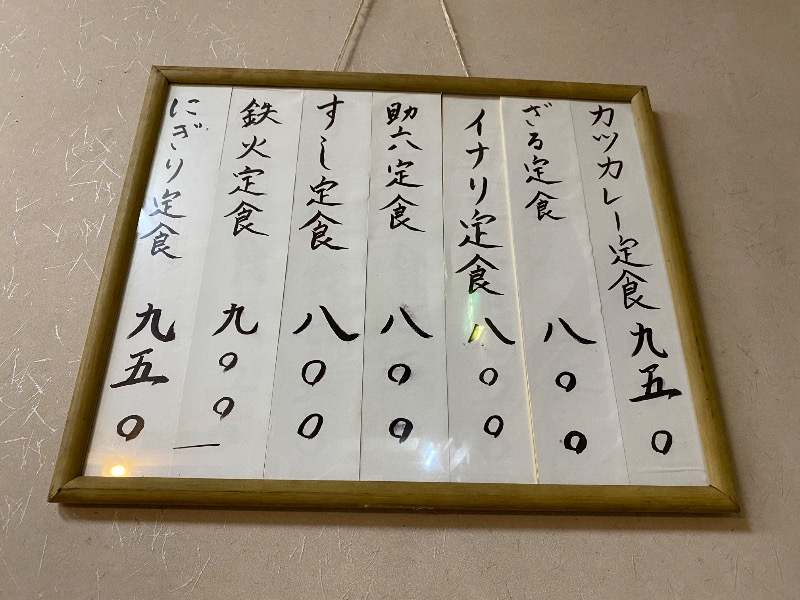 カツカレー定食 九五〇
ざる定食 八〇〇
イナリ定食 八〇〇
助六定食 八〇〇
すし定食 八〇〇
鉄火定食 九〇〇
にぎり定食 九五〇